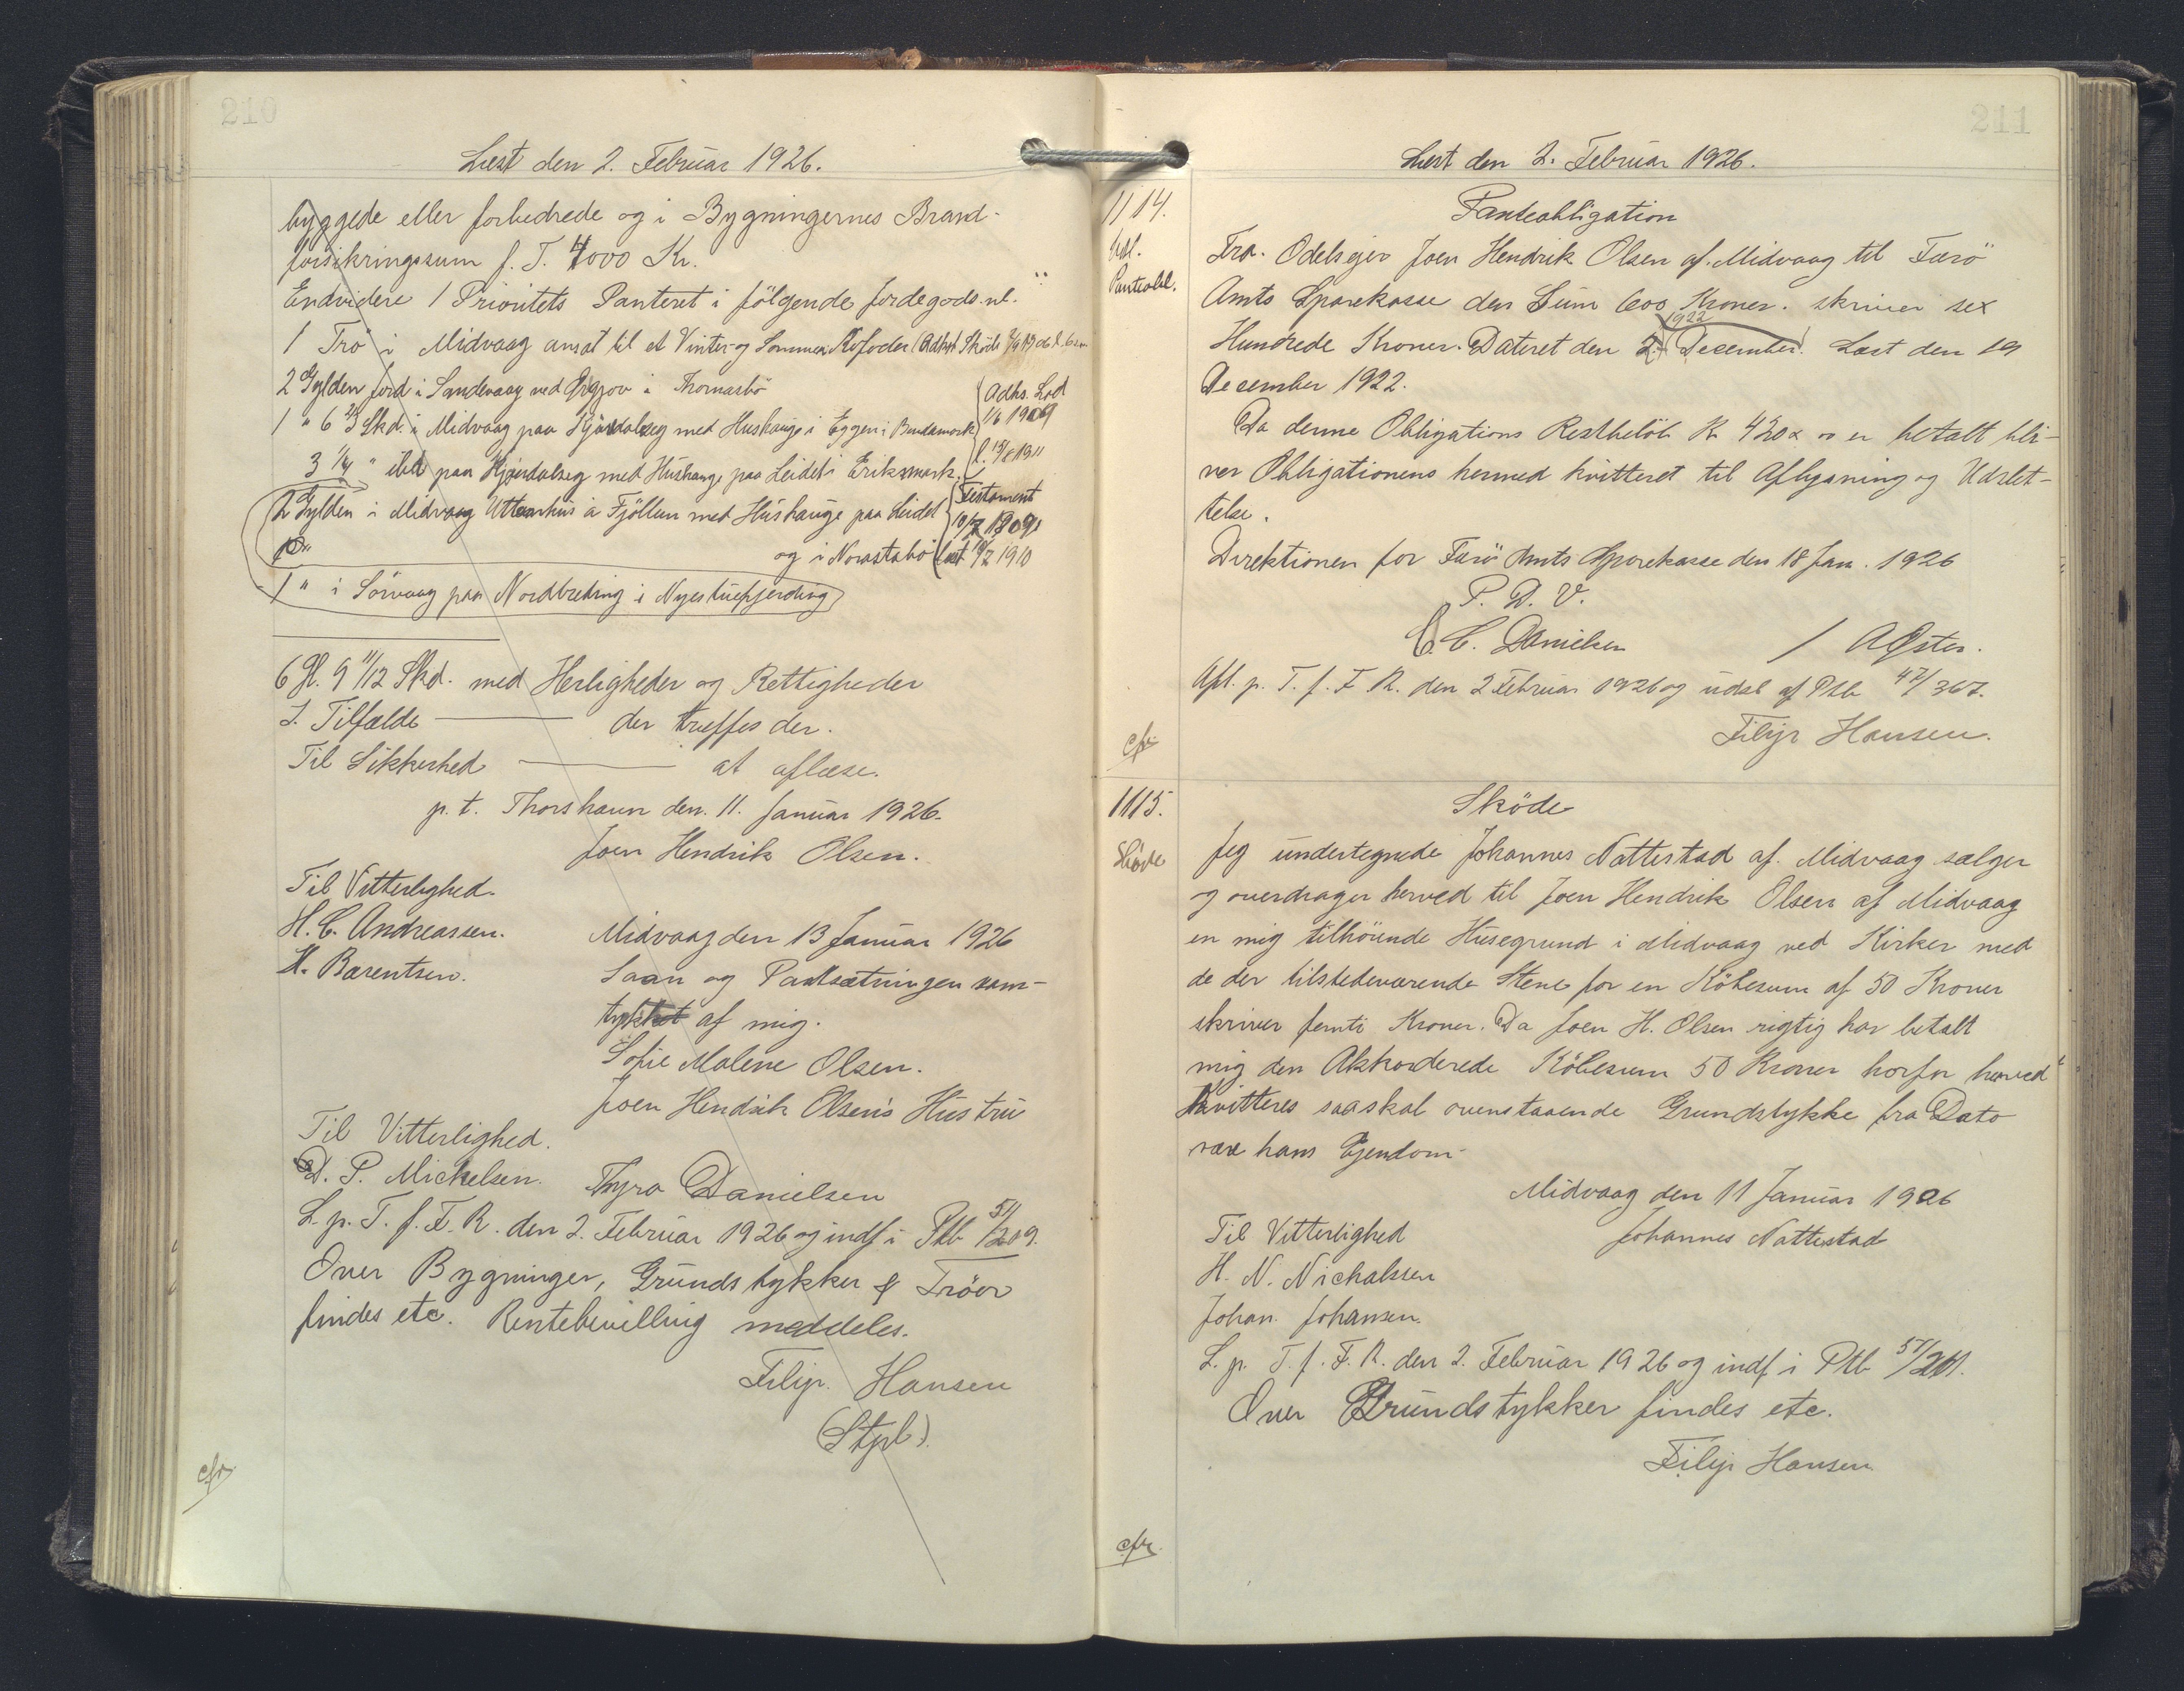 210
Læst den 2. Februar 1926.
byggede eller forbedrede og i Bygningernes Brand-
forsikringssum f. T. 4000 Kr.
Endvidere 1 Prioritets Panteret i følgende Jordegods nl.
1 Trö i Midvaag ansat til et Vinter- og Sommer Kofoder (Adkst Skøde
2 Gylden Jord i Sandevaag ved i Thomasbö
1 " 6 2/3 Skd. i Midvaag paa med Hushauge i Eggen i Bundamork
Adks. Lod
1/6 1909
l. 15/8 1911
3 1/4 " ibd paa med Hushauge paa Leidet i Eriksmark.
2 Gylden i Midvaag Uttanhus a Fjöllum med Hushauge paa Leidet
Testament
10/7 1909
og i Norastabö læst 19/7 1910
1 " i Sörvaag paa i
6 Gl. 9 11/12 Skd. med Herligheder og Rettigheder
I Tilfælde — der træffes der.
Til Sikkerhed — at aflæse.
p. t. Thorshavn den. 11. Januar 1926.
Joen Hendrik Olsen.
Til Vitterlighed.
H. C. Andreassen.
H. Barentsen.
Midvaag den 13 Januar 1926
Laan og Pantsætningen sam-
tykket af mig.
Sofie Malene Olsen.
Joen Hendrik Olsen's Hustru
Til Vitterlighed.
D. P. Mickelsen. Thyra Danielsen
L. p. T. f. F. R. den 2. Februar 1926 og indf i Ptb 51/209.
Over Bygninger, Grundstykker & Tröer
findes etc. Rentebevilling meddeles.
Filip Hansen
(Stpl).
cfr
211
Læst den 2. Februar 1926.
1114.
Udl.
Panteobl.
Panteobligation
Fra. Odelsejer Joen Hendrik Olsen af Midvaag til Færö
Amts Sparekasse den Sum 600 Kroner. skriver sex
1922
Hundrede Kroner. Dateret den 2. December. Læst den 19
December 1922.
Da denne Obligations Restbelöb Kr 420 x oo er betalt bli-
ver Obligationens hermed kvitteret til Aflysning og Udslet-
telse.
Direktionen for Færö Amts Sparekasse den 18 Jan. 1926
P. D. V.
C. C. Danielsen / A Öster.
Afl. p. T. f. F R. den 2 Februar 1926 og udsl af Ptb 47/367.
Filip Hansen.
cfr
1115.
Sköde
Sköde
Jeg undertegnede Johannes Nattestad af. Midvaag sælger
og overdrager herved til Joen Hendrik Olsen af Midvaag
en mig tilhörende Husegrund i Midvaag ved Kirken med
de der tilstedeværende Stene for en Köbesum af 50 Kroner
skriver femti Kroner. Da Joen H. Olsen rigtig har betalt
mig den Akkorderede Köbesum 50 Kroner horfor herved
kvitteres saa skal ovenstaaende Grundstykke fra Dato
være hans Ejendom
Midvaag den 11 Januar 1926
Til Vitterlighed Johannes Nattestad
H. N. Nickalssen
Johan Johansen.
L. p. T. f. F. R. den 2. Februar 1926 og indf i Ptb 51/211.
Over Grundstykker findes etc.
Filip Hansen
cfr.